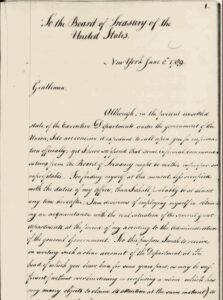 1.
To the Board of Treasury of the
United States.
New York June 8th 1789.
Gentlemen,
Although, in the present unsettled
state of the Executive Departments under the government of the
Union, I do not conceive it expedient to call upon you for inform-
ation officially; yet I have supposed that some informal communi-
cations from the Board of Treasury might be neither improper or
unprofitable. For finding myself at this moment less occupied
with the duties of my office than I shall probably be at almost
any time hereafter, I am desirous of employing myself in obtain-
ing an acquaintance with the real situation of the several great
departments at the period of my acceding to the administration
of the general Government. For this purpose I wish to receive
in writing such a clear account of the Department at the
head of which you have been for some years past, as may be suf-
ficient, without overburdening or confusing a mind which has
very many objects to claim its attention at the same instant